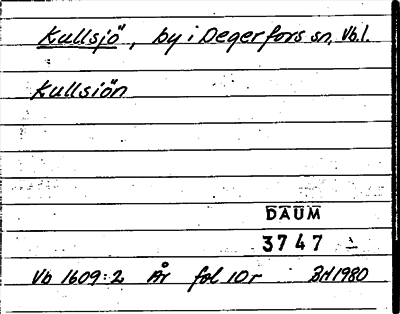 Kullsjö, by i Degerfors sn, Vb.l.
Kullsiön
DAUM
3747
Vb 1609:2 År fol 10r BH 1980